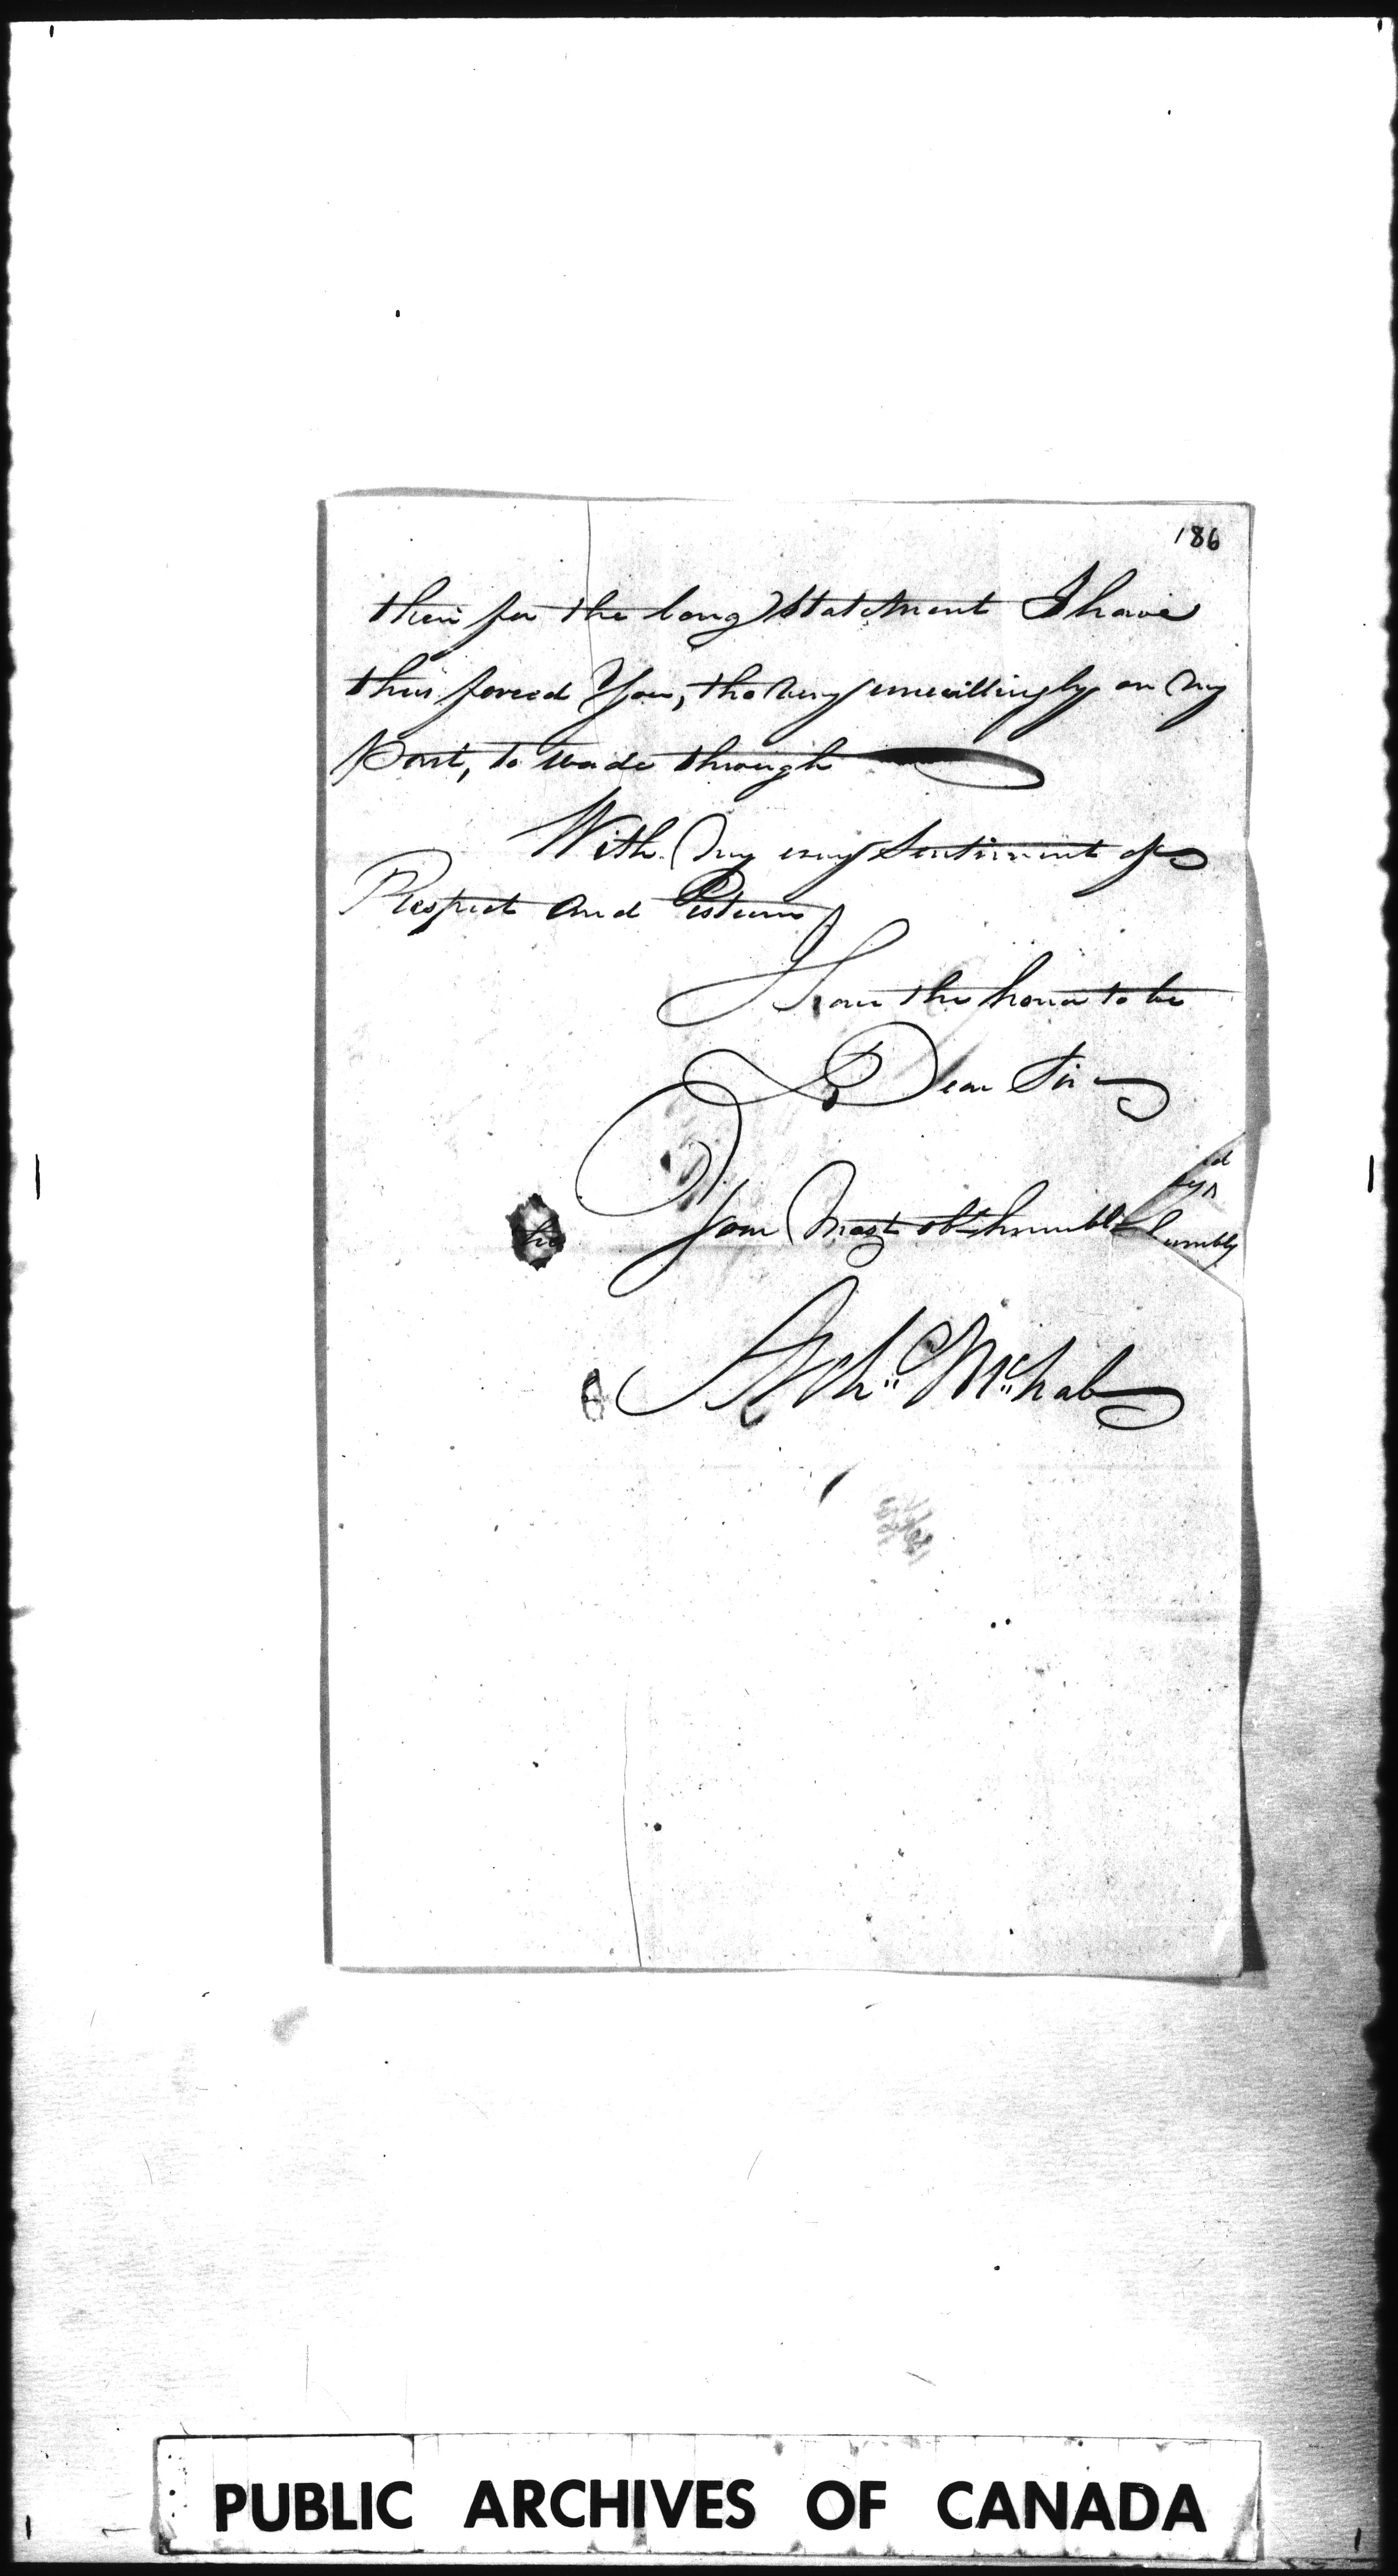 186
then for the long Statement I have
thus forced You, tho very unwillingly on my
Part, to wade through
With my every Sentiment of
Respect and Esteem
I have the honor to be
Dear Sir
Your Most obt humble
humbly
Archd McNab
PUBLIC ARCHIVES OF CANADA